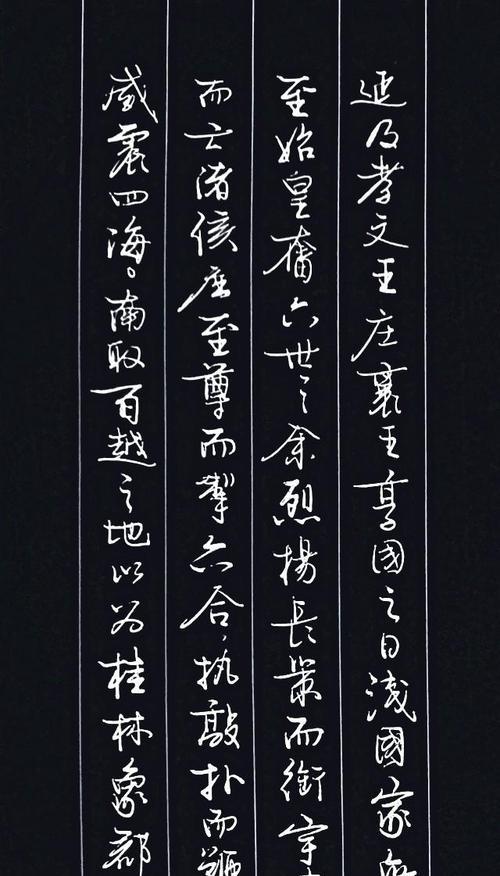 延及孝文王庄襄王享國之日淺國家無
至始皇奮六世之余烈揚長策而御宇
而亡諸侯履至尊而掣六合，执敲扑而鞭
威震四海。南取百越之地以为桂林象郡